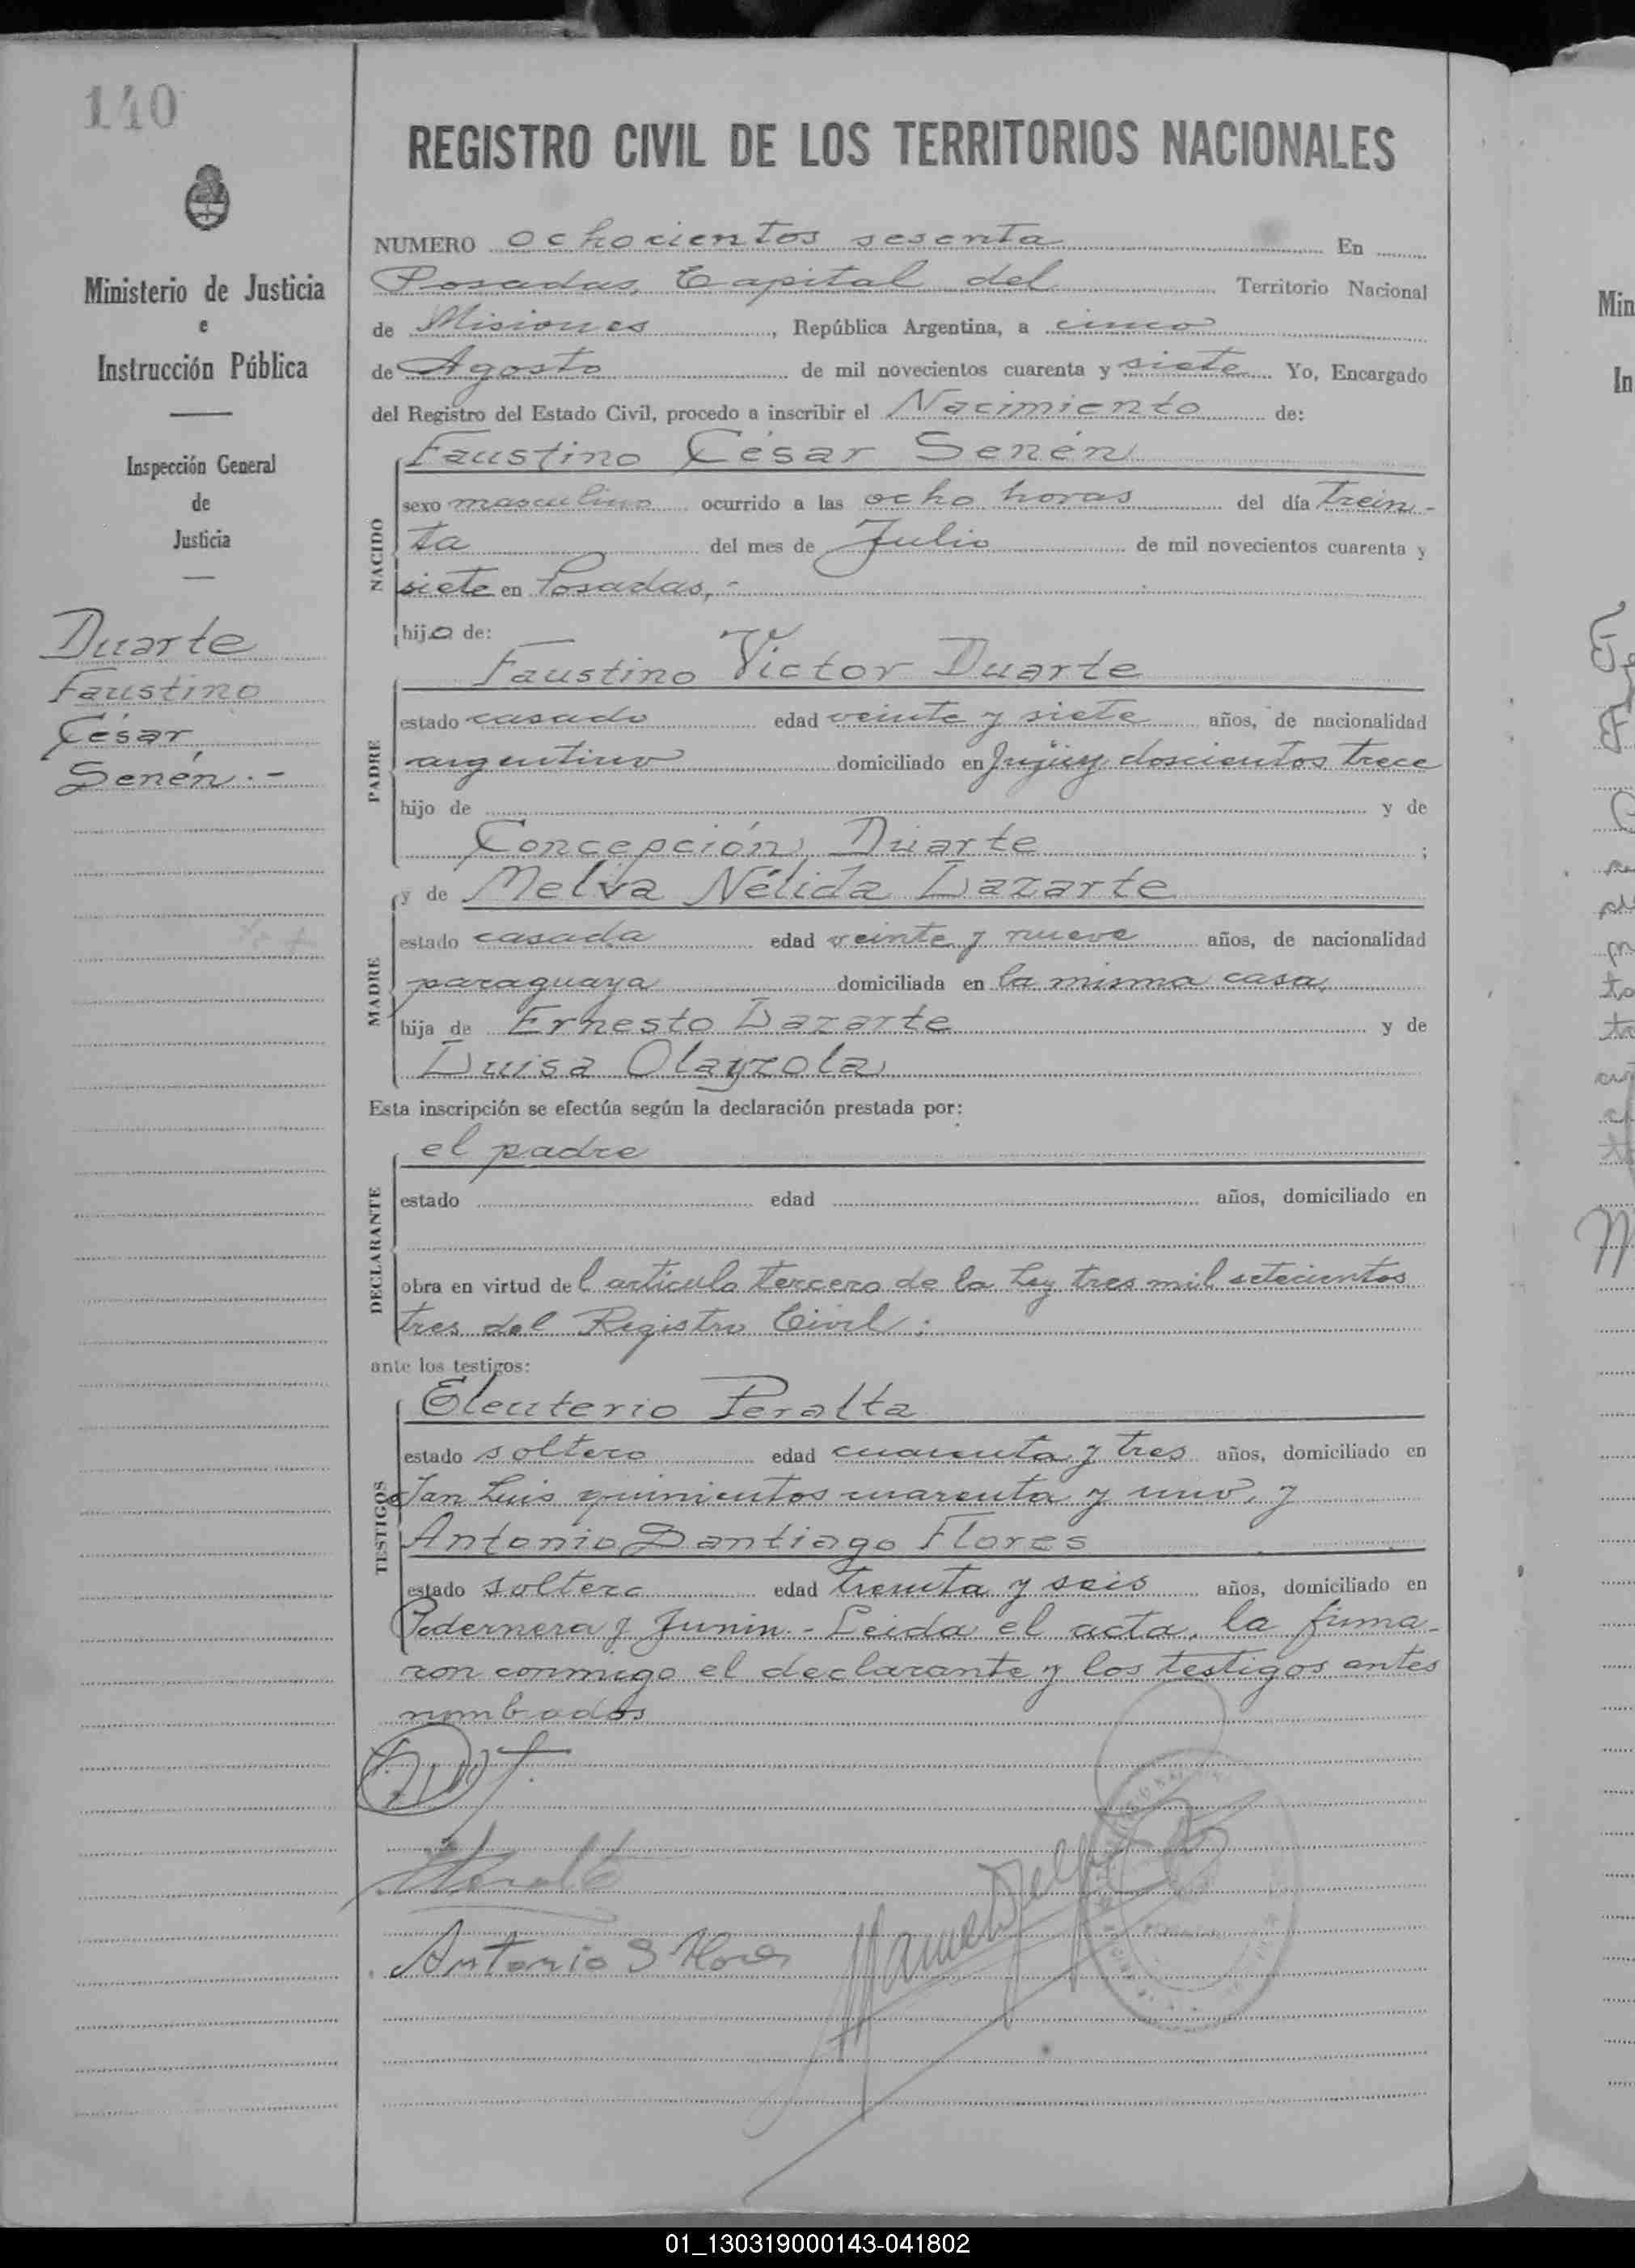 140
Ministerio de Justicia
e
Instrucción Pública
Inspección General
de
Justicia
Duarte
Faustino
César
Senén.-
REGISTRO CIVIL DE LOS TERRITORIOS NACIONALES
NUMERO ochocientos sesenta En
Posadas, Capital del Territorio Nacional
de Misiones, República Argentina, a cinco
de Agosto de mil novecientos cuarenta y siete Yo, Encargado
del Registro del Estado Civil, procedo a inscribir el Nacimiento de:
Faustino César Senén
NACIDO
sexo masculino ocurrido a las ocho horas del día trein-
ta del mes de Julio de mil novecientos cuarenta y
siete en Posadas,-
hijo de:
Faustino Victor Duarte
PADRE
estado casado edad veinte y siete años, de nacionalidad
argentino domiciliado en Jujuy doscientos trece
hijo de y de
Concepción Duarte ;
y de Melva Nélida Lazarte
MADRE
estado casada edad veinte y nueve años, de nacionalidad
paraguaya domiciliada en la misma casa,
hija de Ernesto Lazarte y de
Luisa Olayzola
Esta inscripción se efectúa según la declaración prestada por:
el padre
DECLARANTE
estado edad años, domiciliado en
obra en virtud del artículo tercero de la Ley tres mil setecientos
tres del Registro Civil;
ante los testigos:
Eleuterio Peralta
TESTIGOS
estado soltero edad cuarenta y tres años, domiciliado en
San Luis quinientos cuarenta y uno, y
Antonio Santiago Flores
estado soltero edad treinta y seis años, domiciliado en
Pedernera y Junin.- Leida el acta, la firma-
ron conmigo el declarante y los testigos antes
nombrados
Antonio S Flores
01_130319000143-041802